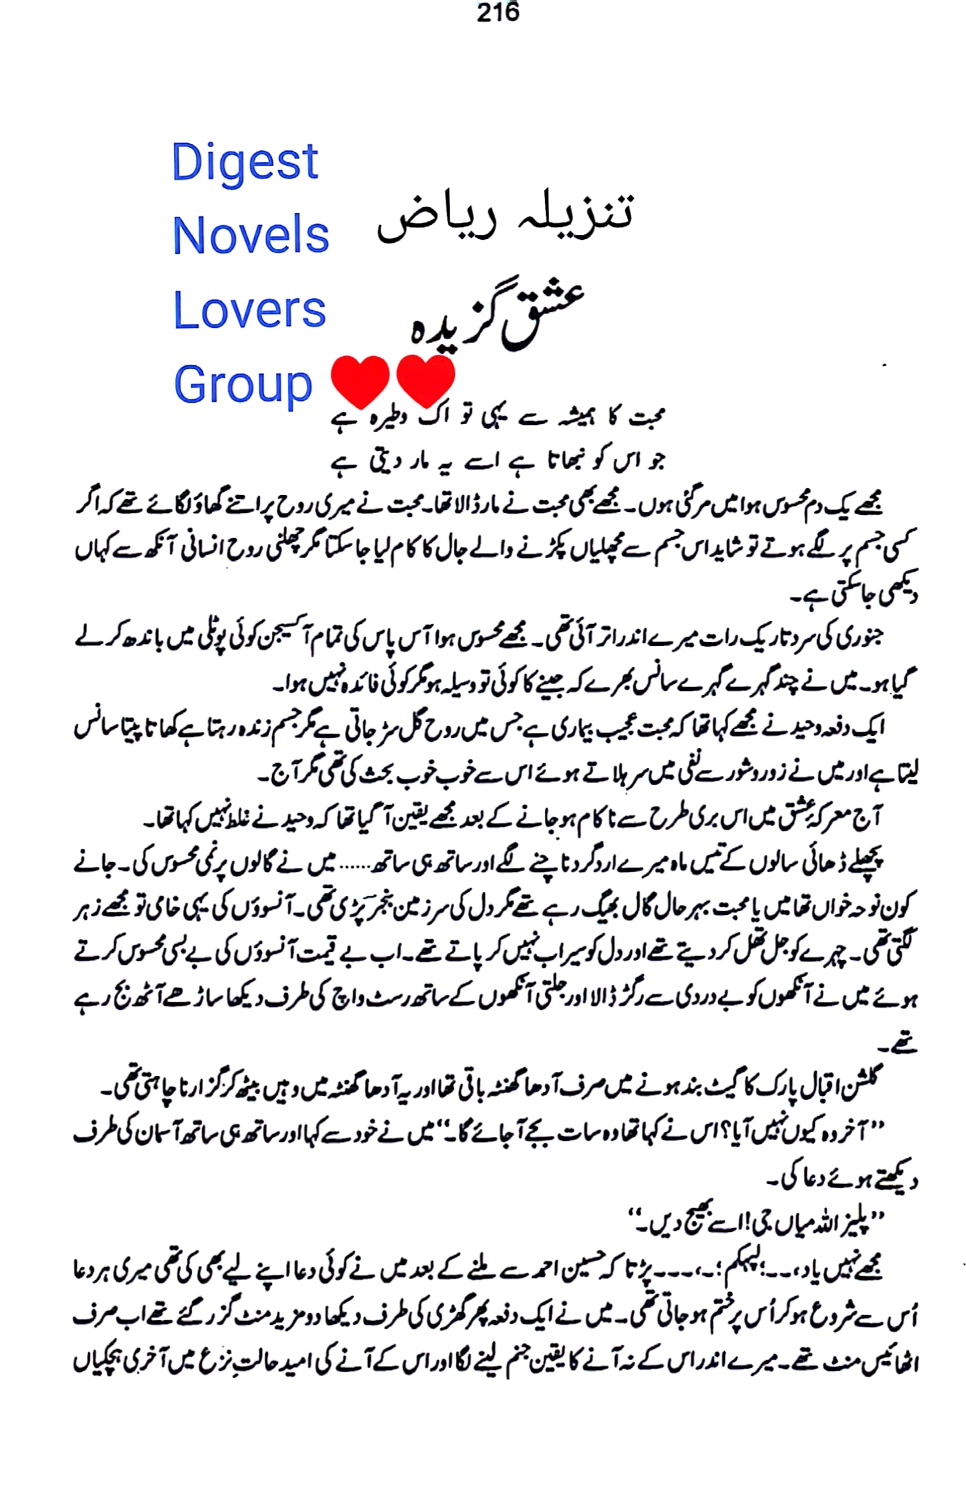 216
Digest
Novels
Lovers
Group
تنزیلہ ریاض
عشق گزیدہ
محبت کا ہمیشہ سے یہی تو اک وطیرہ ہے
جو اس کو نبھاتا ہے اسے یہ مار دیتی ہے
مجھے یک دم محسوس ہوا میں مرگئی ہوں۔ مجھے بھی محبت نے مار ڈالا تھا۔ محبت نے میری روح پر اتنے گھاؤ لگائے تھے کہ اگر
کسی جسم پر لگے ہوتے تو شاید اس جسم سے مچھلیاں پکڑنے والے جال کا کام لیا جا سکتا مگر چھلنی روح انسانی آنکھ سے کہاں
دیکھی جاسکتی ہے۔
جنوری کی سرد تاریک رات میرے اندر اتر آئی تھی۔ مجھے محسوس ہوا آس پاس کی تمام آکسیجن کوئی پوٹلی میں باندھ کر لے
گیا ہو۔ میں نے چند گہرے گہرے سانس بھرے کہ جینے کا کوئی تو وسیلہ ہو مگر کوئی فائدہ نہیں ہوا۔
ایک دفعہ وحید نے مجھے کہا تھا کہ محبت عجیب بیماری ہے جس میں روح گل سڑ جاتی ہے مگر جسم زندہ رہتا ہے کھاتا پیتا سانس
لیتا ہے اور میں نے زور و شور سے نفی میں سر ہلاتے ہوئے اس سے خوب خوب بحث کی تھی مگر آج۔
آج معرکۂ عشق میں اس بری طرح سے ناکام ہو جانے کے بعد مجھے یقین آگیا تھا کہ وحید نے غلط نہیں کہا تھا۔
پچھلے ڈھائی سالوں کے تیس ماہ میرے اردگرد ناچنے لگے اور ساتھ ہی ساتھ...... میں نے گالوں پر نمی محسوس کی۔ جانے
کون نوحہ خواں تھا میں یا محبت بہرحال گال بھیگ رہے تھے مگر دل کی سرزمین بنجر پڑی تھی۔ آنسوؤں کی یہی خامی تو مجھے زہر
لگتی تھی۔ چہرے کو جل تھل کر دیتے تھے اور دل کو سیراب نہیں کر پاتے تھے۔ اب بے قیمت آنسوؤں کی بے بسی محسوس کرتے
ہوئے میں نے آنکھوں کو بے دردی سے رگڑ ڈالا اور جلتی آنکھوں کے ساتھ رسٹ واچ کی طرف دیکھا ساڑھے آٹھ بج رہے
تھے۔
گلشن اقبال پارک کا گیٹ بند ہونے میں صرف آدھا گھنٹہ باقی تھا اور یہ آدھا گھنٹہ میں وہیں بیٹھ کر گزارنا چاہتی تھی۔
”آخر وہ کیوں نہیں آیا؟ اس نے کہا تھا وہ سات بجے آ جائے گا۔“ میں نے خود سے کہا اور ساتھ ہی ساتھ آسمان کی طرف
دیکھتے ہوئے دعا کی۔
”پلیز اللہ میاں جی! اسے بھیج دیں۔“
مجھے نہیں یاد پڑتا کہ حسین احمد سے ملنے کے بعد میں نے کوئی دعا اپنے لیے بھی کی تھی میری ہر دعا
اُس سے شروع ہو کر اُس پر ختم ہو جاتی تھی۔ میں نے ایک دفعہ پھر گھڑی کی طرف دیکھا دو مزید منٹ گزر گئے تھے اب صرف
اٹھائیس منٹ تھے۔ میرے اندر اس کے نہ آنے کا یقین جنم لینے لگا اور اس کے آنے کی امید حالتِ نزع میں آخری ہچکیاں